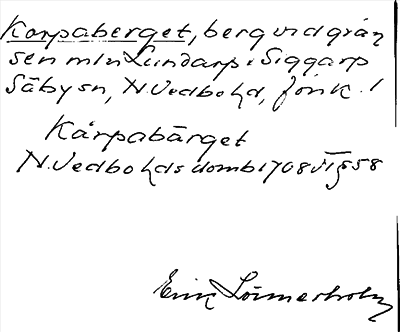 Korpaberget, berg vid grän
sen mln Lundarp o Siggarp
Säby sn, N. Vedbo hd, Jönk. l
Kårpabärget
N. Vedbo hds domb 1708 § 58
Erik